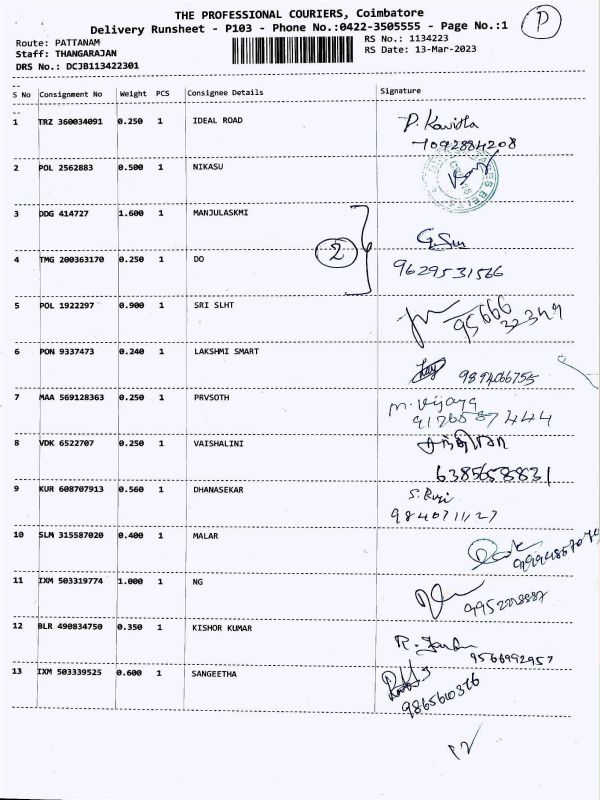 THE PROFESSIONAL COURIERS, Coimbatore
P
Delivery Runsheet - P103 - Phone No.:0422-3505555 - Page No.:1
Route: PATTANAM
RS No.: 1134223
Staff: THANGARAJAN
RS Date: 13-Mar-2023
DRS No.: DCJB113422301
S No Consignment No Weight PCS Consignee Details Signature
1 TRZ 360034091 0.250 1 IDEAL ROAD P. Kavitha
7092884208
2 POL 2562883 0.500 1 NIKASU
3 DDG 414727 1.600 1 MANJULASKMI
2
4 TMG 200363170 0.250 1 DO
9629531566
5 POL 1922297 0.900 1 SRI SLHT
95666
32349
6 PON 9337473 0.240 1 LAKSHMI SMART
9894066755
7 MAA 569128363 0.250 1 PRVSOTH M. Vijaya
9176587444
8 VDK 6522707 0.250 1 VAISHALINI
6385658831
9 KUR 608707913 0.560 1 DHANASEKAR
9840711127
10 SLM 315587020 0.400 1 MALAR
11 IXM 503319774 1.000 1 NG
12 BLR 490834750 0.350 1 KISHOR KUMAR
9566992957
13 IXM 503339525 0.600 1 SANGEETHA
9865610376